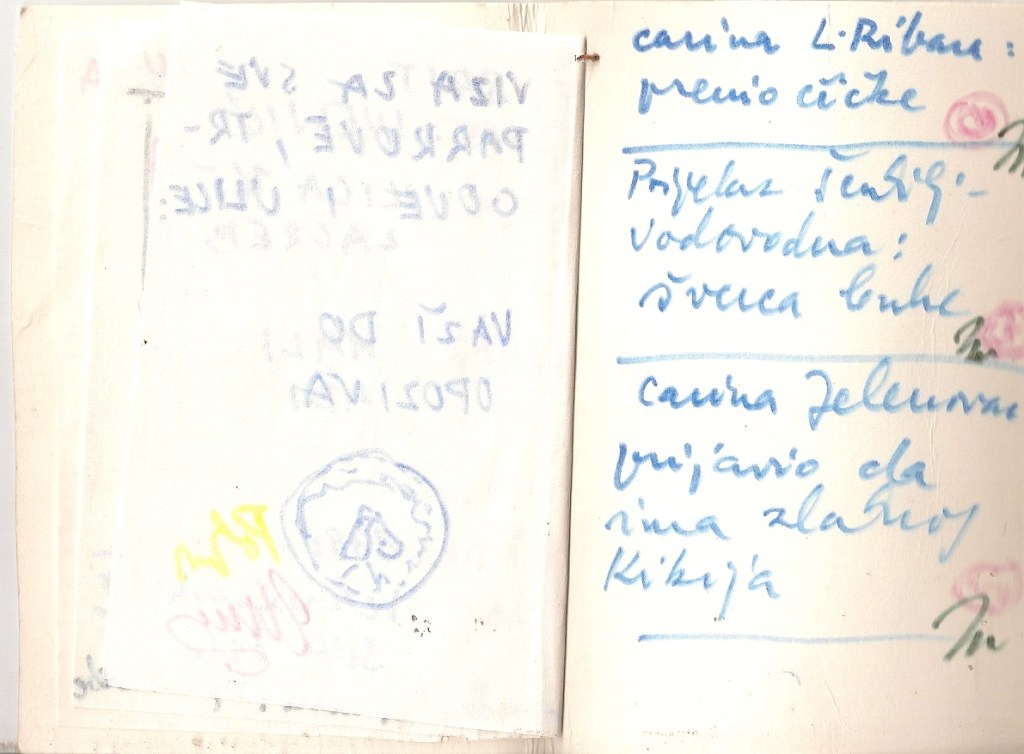 VIZA ZA SVE
PARKOVE, TR-
GOVE I ULICE:
ZAGREB
VAŽI DO
OPOZIVA:
carina L. Ribar:
prenio čičke
Prijelaz Šenbilj-
vodovodna:
šverca buhe
carina Jelenovac
prijavio da
ima zlatnog
Kikija